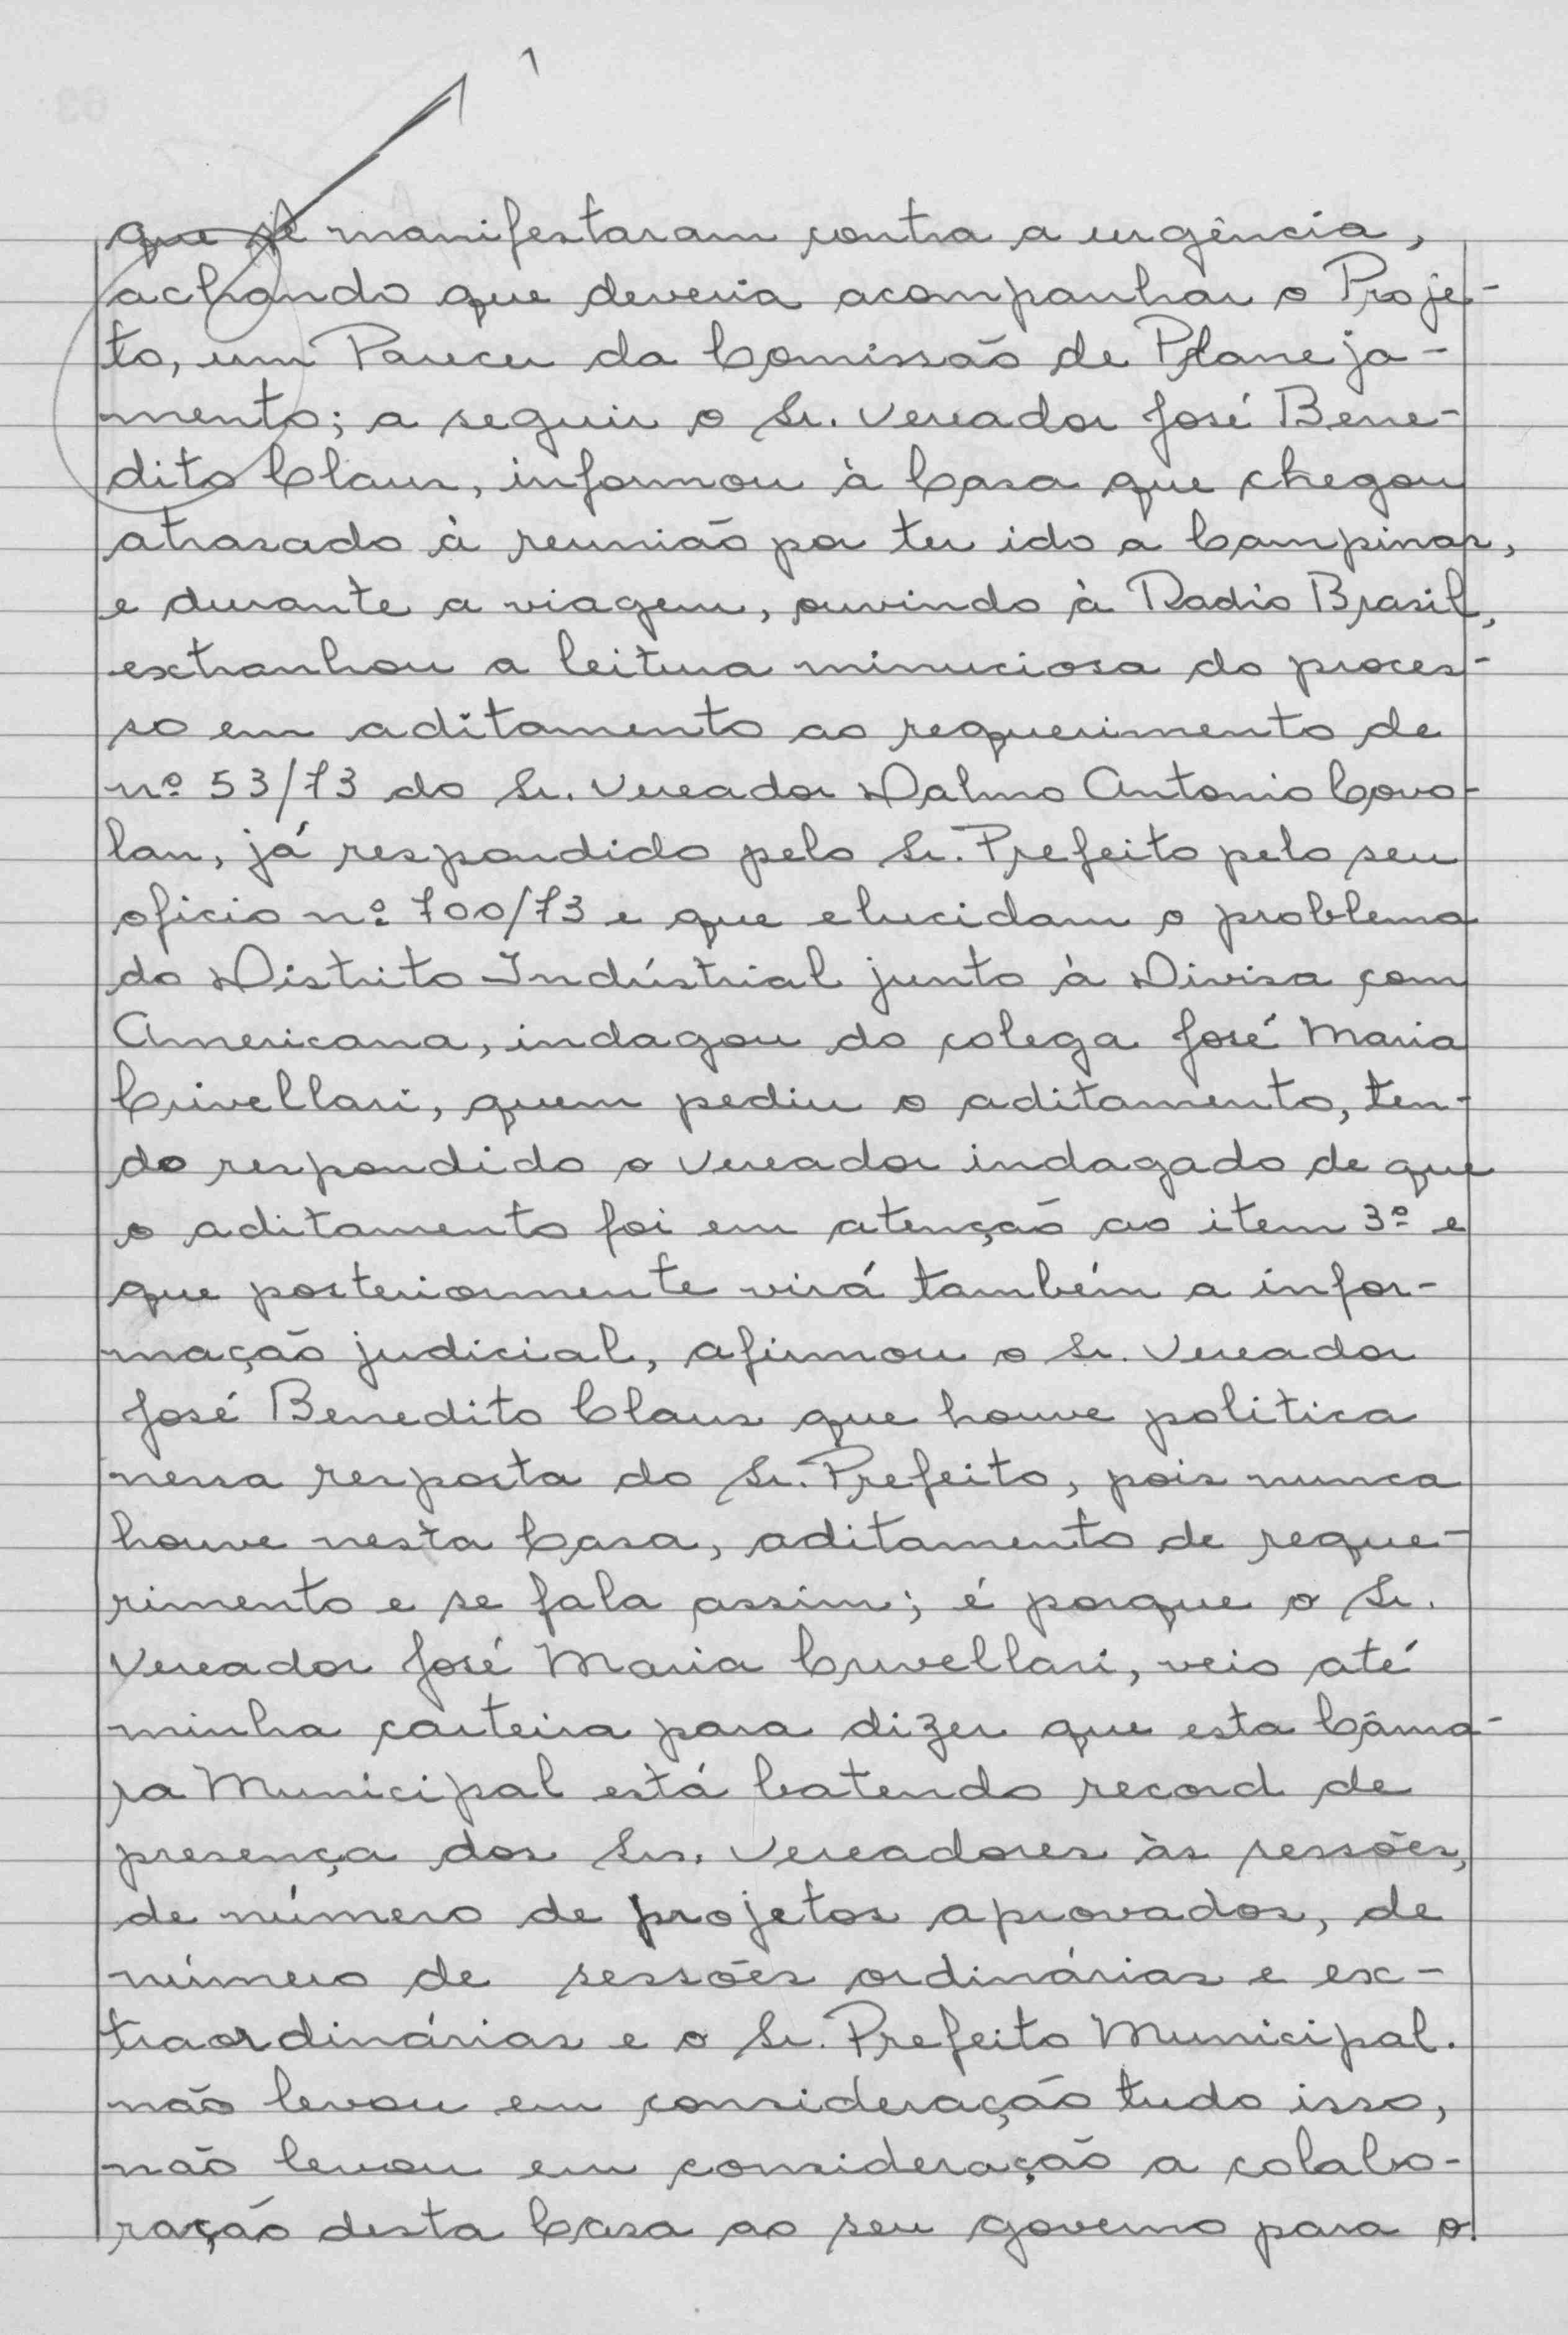 que se manifestaram contra a urgência,
achando que deveria acompanhar o Proje-
to, um Parecer da Comissão de Planeja-
mento; a seguir o Sr. Vereador José Bene-
dito Claus, informou à Casa que chegou
atrasado à reunião por ter ido a Campinas,
e durante a viagem, ouvindo à Radio Brasil,
extranhou a leitura minuciosa do proces-
so em aditamento ao requerimento de
nº 53/73 do Sr. Vereador Dalmo Antonio Covo-
lan, já respondido pelo Sr. Prefeito pelo seu
oficio nº 700/73 e que elucidam o problema
do Distrito Indústrial junto à Divisa com
Americana, indagou do colega José Maria
Crivellari, quem pediu o aditamento, ten-
do respondido o Vereador indagado de que
o aditamento foi em atenção ao item 3º e
que posteriormente virá também a infor-
mação judicial, afirmou o Sr. Vereador
José Benedito Claus que houve politica
nessa resposta do Sr. Prefeito, pois nunca
houve nesta Casa, aditamento de reque-
rimento e se fala assim; é porque o Sr.
Vereador José Maria Cruvellari, veio até
minha carteira para dizer que esta Câma-
ra Municipal está batendo record de
presença dos Srs. Vereadores às sessões,
de número de projetos aprovados, de
número de sessões ordinárias e ex-
traordinárias e o Sr. Prefeito Municipal.
não levou em consideração tudo isso,
não levou em consideração a colabo-
ração desta Casa ao seu governo para o